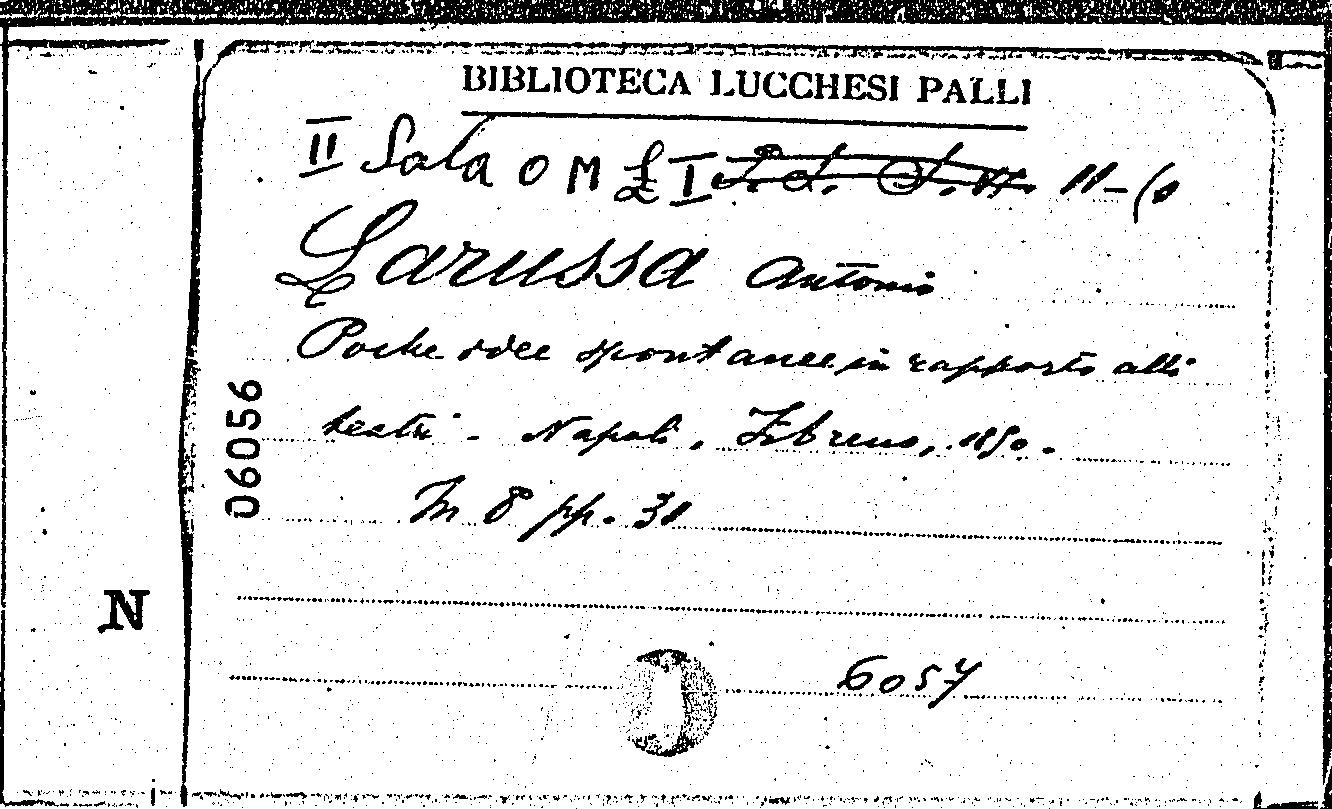 BIBLIOTECA LUCCHESI PALLI
II Sala O M £ I 11-(8
Larussa Antonio
Poche idee spontanee in rapporto alli
teatri. Napoli, Fibreno, 1850.
In 8 pp. 38
06056
N
6057